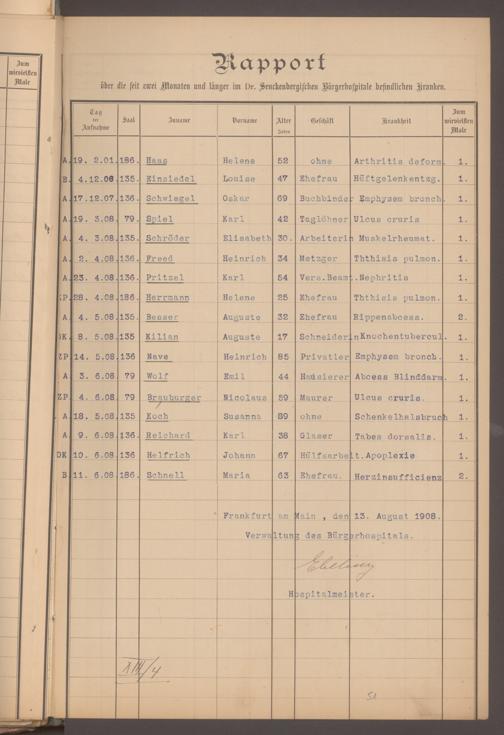 Zum
wievielten
Male
Rapport
über die seit zwei Monaten und länger im Dr. Senckenbergischen Bürgerhospitale befindlichen Kranken.
Tag der Aufnahme Saal Zuname Vorname Alter Jahren Geschäft Krankheit Zum wievielten Male
A. 19. 2.01. 186. Haas Helene 52 ohne Arthritis deform. 1.
B. 4.12.08 135. Einsiedel Louise 47 Ehefrau Hüftgelenkentzg. 1.
A. 17.12.07. 136. Schwiegel Oskar 69 Buchbinder Emphysem bronch. 1.
A. 19. 3.08 79. Spiel Karl 42 Taglöhner Ulcus cruris 1.
A. 4. 3.08 135. Schröder Elisabeth 30. Arbeiterin Muskelrheumat. 1.
A. 2. 4.08 136. Freed Heinrich 34 Metzger Ththisis pulmon. 1.
A. 23. 4.08 136. Pritzel Karl 54 Vers.Beamt. Nephritis 1.
ZP. 28. 4.08 186. Herrmann Helene 25 Ehefrau Ththisis pulmon. 1.
A. 4. 5.08 135. Besser Auguste 32 Ehefrau Rippenabscess. 2.
OK. 8. 5.08 135 Kilian Auguste 17 Schneiderin Knochentubercul. 1.
ZP. 14. 5.08 136 Nave Heinrich 85 Privatier Emphysem bronch. 1.
A 3. 6.08 79 Wolf Emil 44 Hausierer Abcess Blinddarm. 1.
ZP. 4. 6.08 79 Brauburger Nicolaus 59 Maurer Ulcus cruris. 1.
A. 18. 5.08 135 Koch Susanna 89 ohne Schenkelhalsbruch 1.
A. 9. 6.08 136. Reichard Karl 38 Glaser Tabes dorsalis. 1.
OK 10. 6.08 136 Helfrich Johann 67 Hülfsarbeit. Apoplexie 1.
B. 11. 6.08 186. Schnell Maria 63 Ehefrau. Herzinsufficienz 2.
Frankfurt am Main , den 13. August 1908.
Verwaltung des Bürgerhospitals.
Hospitalmeister.
XIII/4
51